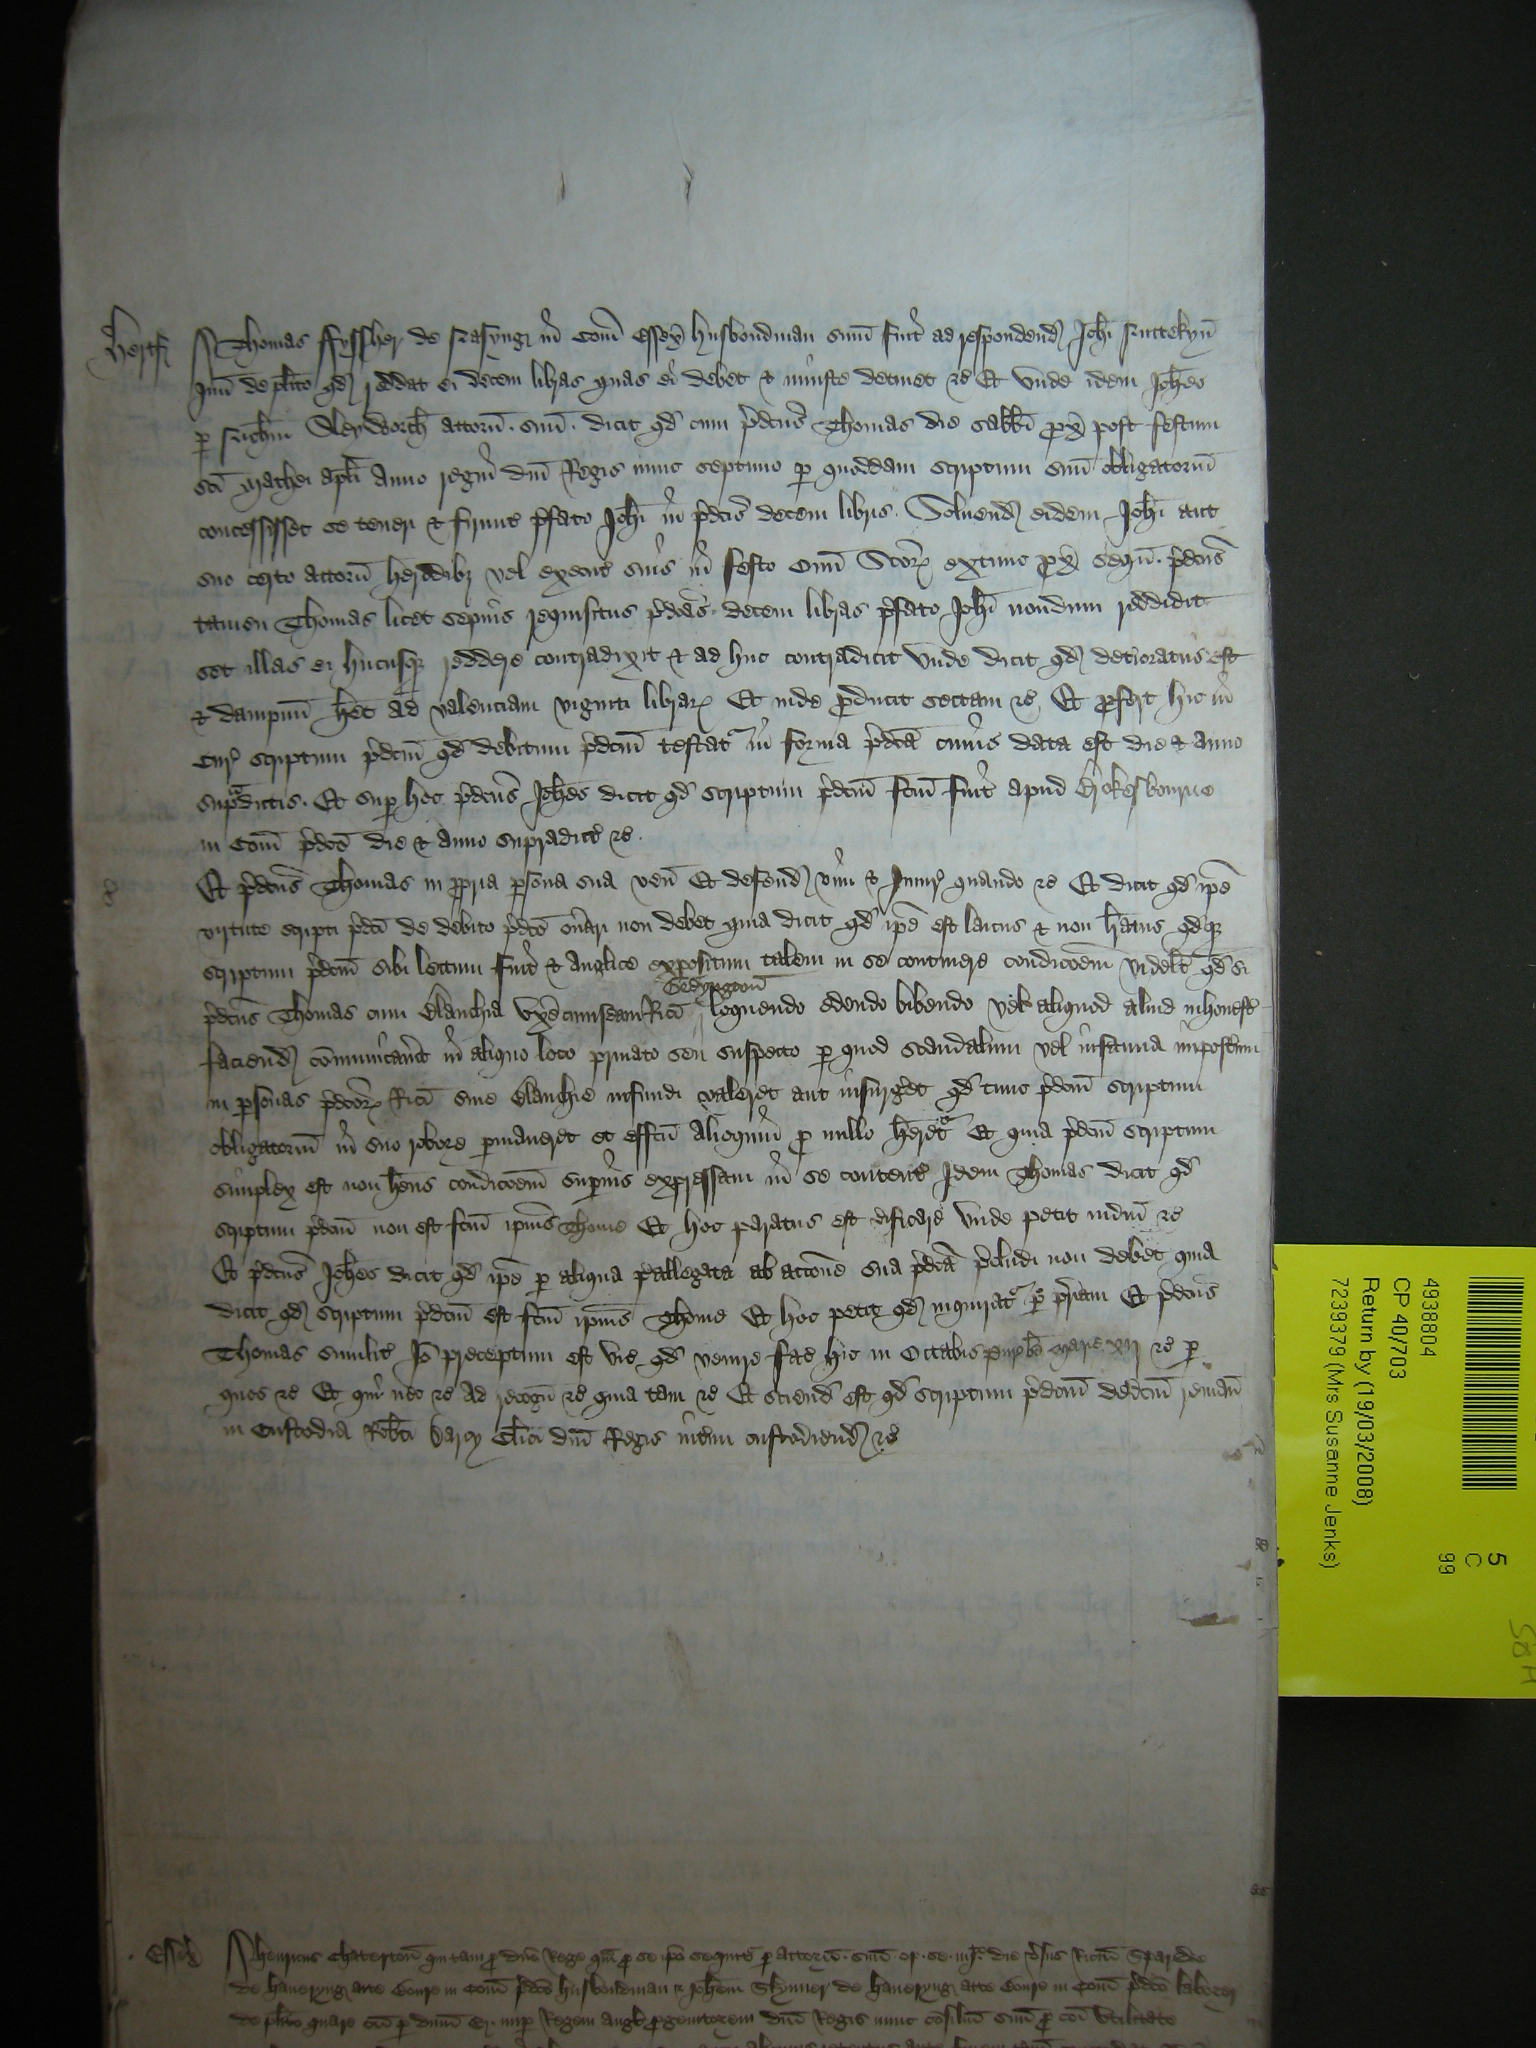 Hertf
Thomas ffyssher de Nasyng in Com Essex husbondman sum fuit ad respondend Johi
Juñ de plito qd reddat ei decem libras quas ei debet & iniuste detinet &c Et unde idem Johes
p attorn suu dicit qd cum pdcus Thomas die sabbi px post festum
sci Mathei apli Anno regni dni Regis nunc septimo p quoddam scriptum suu obligatoriu
concessisset se teneri & firmit pfato Johi in pdcis decem libris Solvend eidem Johi aut
suo certo attorn heredibz vel execut suis in festo Omi Scor extunc px sequ pdcus
tamen Thomas licet sepius requisitus pdcas decem libras pfato Johi nondum reddidit
set illas ei hucusqz reddere contradixit & ad huc contradicit unde dicit qd deterioratus est
& dampnu het ad valenciam viginti librar Et inde pducit sectam &c Et pfert hic in
Cur scriptum pdcm qd debitum pdcm testat in forma pdca cuius data est die & anno
supradictis Et sup hoc pdcus Johes dicit qd scriptum pdcm fcm fuit apud Brokesbourne
in Com pdco die & anno supradict &c
Et pdcus Thomas in ppria psona sua ven Et defend vim & Iniur quando &c Et dicit qd ipe
virtute scripti pdci de debito pdco onari non debet quia dicit qd ipe est laicus & non lratus qdqz
scriptum pdcm sibi lectum fuit & anglice expositum talem in se continere condicoem videlt qd si
Bedyngton
pdcus Thomas cum Blanchia Uxe cuiusdam Rici loquendo edendo bibendo vel aliquod aliud inhonest
faciend coicaret in aliquo loco privato seu suspecto p quod scandalum vel infamia impostm
in psonas pdcor Rici sive Blanchie infundi valeret aut insurget qd tunc pdcm scriptum
obligatoriu in suo robore pmaneret et effcu alioquin p nullo heret Et quia pdcm scriptum
simplex est non hens condicoem supius expressam in se content Idem Thomas dicit qd
scriptum pdcm non est fcm ipius Thome Et hoc paratus est vificare unde petit iudm &c
Et pdcus Johes dicit qd ipe p aliqua pallegata ab accione sua pdca pcludi non debet quia
dicit qd scriptum pdcm est fcm ipius Thome Et hoc petit qd inquirat p priam Et pdcus
Thomas similit Io preceptum est vic qd venire fac hic in Octabis Pur be Marie xij &c p
quos &c Et qui nec &c Ad recogn &c quia tam &c Et sciend est qd scriptum pdcm dedcm reman
in Custodia Robti Darcy Clici dni Regis intim custodiend &c
Essex
Henricus Chaterton qui tam p dno Rege qm p se ipo sequit p attorn suu op se iiijto die vsus Ricm
de Haveryng atte Boure in Com pdco husbondman & Johem Skynner de Haveryng atte Boure in Com pdco laborer
de plito quare cu p dnm nup Regem Angl pgenitorem dni Regis nunc consiliu suu p coi utilitate
4938804
CP 40/703
Return by (19/03/2008)
7239379 (Mrs Susanne Jenks)
5
C
99